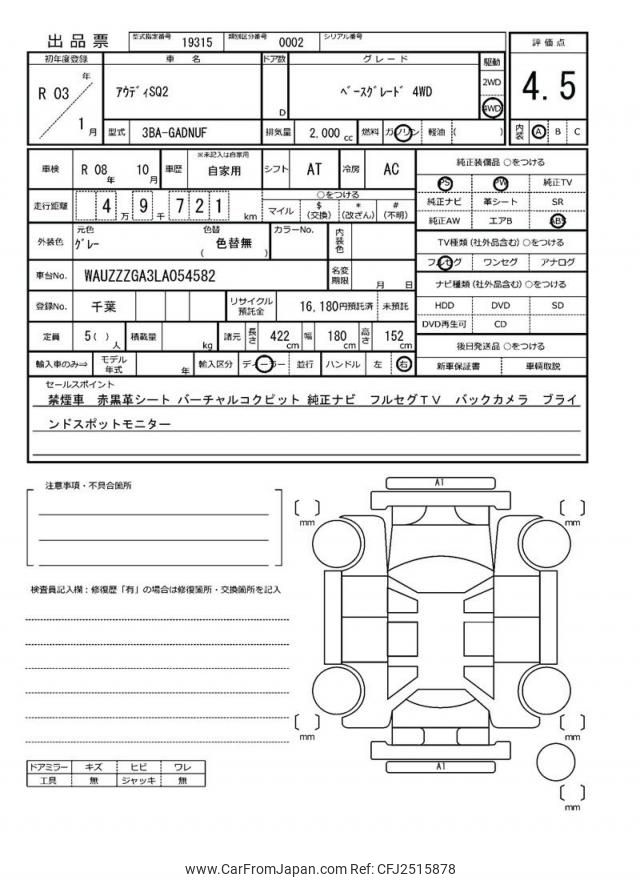 出品票 型式指定番号 19315 類別区分番号 0002 シリアル番号
評価点
4.5
内装 A B C
初年度登録 車名 ドア数 グレード 駆動
R 03 年 1 月
アウディSQ2
D
ベースグレード 4WD
2WD
4WD
型式 3BA-GADNUF 排気量 2,000 cc 燃料 ガソリン 軽油 ( )
車検 R 08 年 10 月 車歴 ※未記入は自家用 自家用 シフト AT 冷房 AC
走行距離 4 万 9 千 7 2 1 km
○をつける
マイル $ (交換) * (改ざん) # (不明)
外装色 元色 グレー 色替 色替無 ( ) カラーNo. 内装色
車台No. WAUZZZGA3LA054582 名変期限 月 日
登録No. 千葉 リサイクル預託金 16,180円預託済 未預託
定員 5 ( ) 人 積載量 kg 諸元 長さ 422 cm 幅 180 cm 高さ 152 cm
輸入車のみ⇒ モデル年式 年 輸入区分 ディーラー 並行 ハンドル 左 右
純正装備品 ○をつける
PS PW 純正TV
純正ナビ 革シート SR
純正AW エアB ABS
TV種類 (社外品含む) ○をつける
フルセグ ワンセグ アナログ
ナビ種類 (社外品含む) ○をつける
HDD DVD SD
DVD再生可 CD
後日発送品 ○をつける
新車保証書 車輌取説
セールスポイント
禁煙車 赤黒革シート バーチャルコクピット 純正ナビ フルセグTV バックカメラ ブライ
ンドスポットモニター
注意事項・不具合箇所
検査員記入欄:修復歴「有」の場合は修復箇所・交換箇所を記入
A1
mm
mm
mm
mm
A1
mm
ドアミラー キズ ヒビ ワレ
工具 無 ジャッキ 無
www.CarFromJapan.com Ref: CFJ2515878